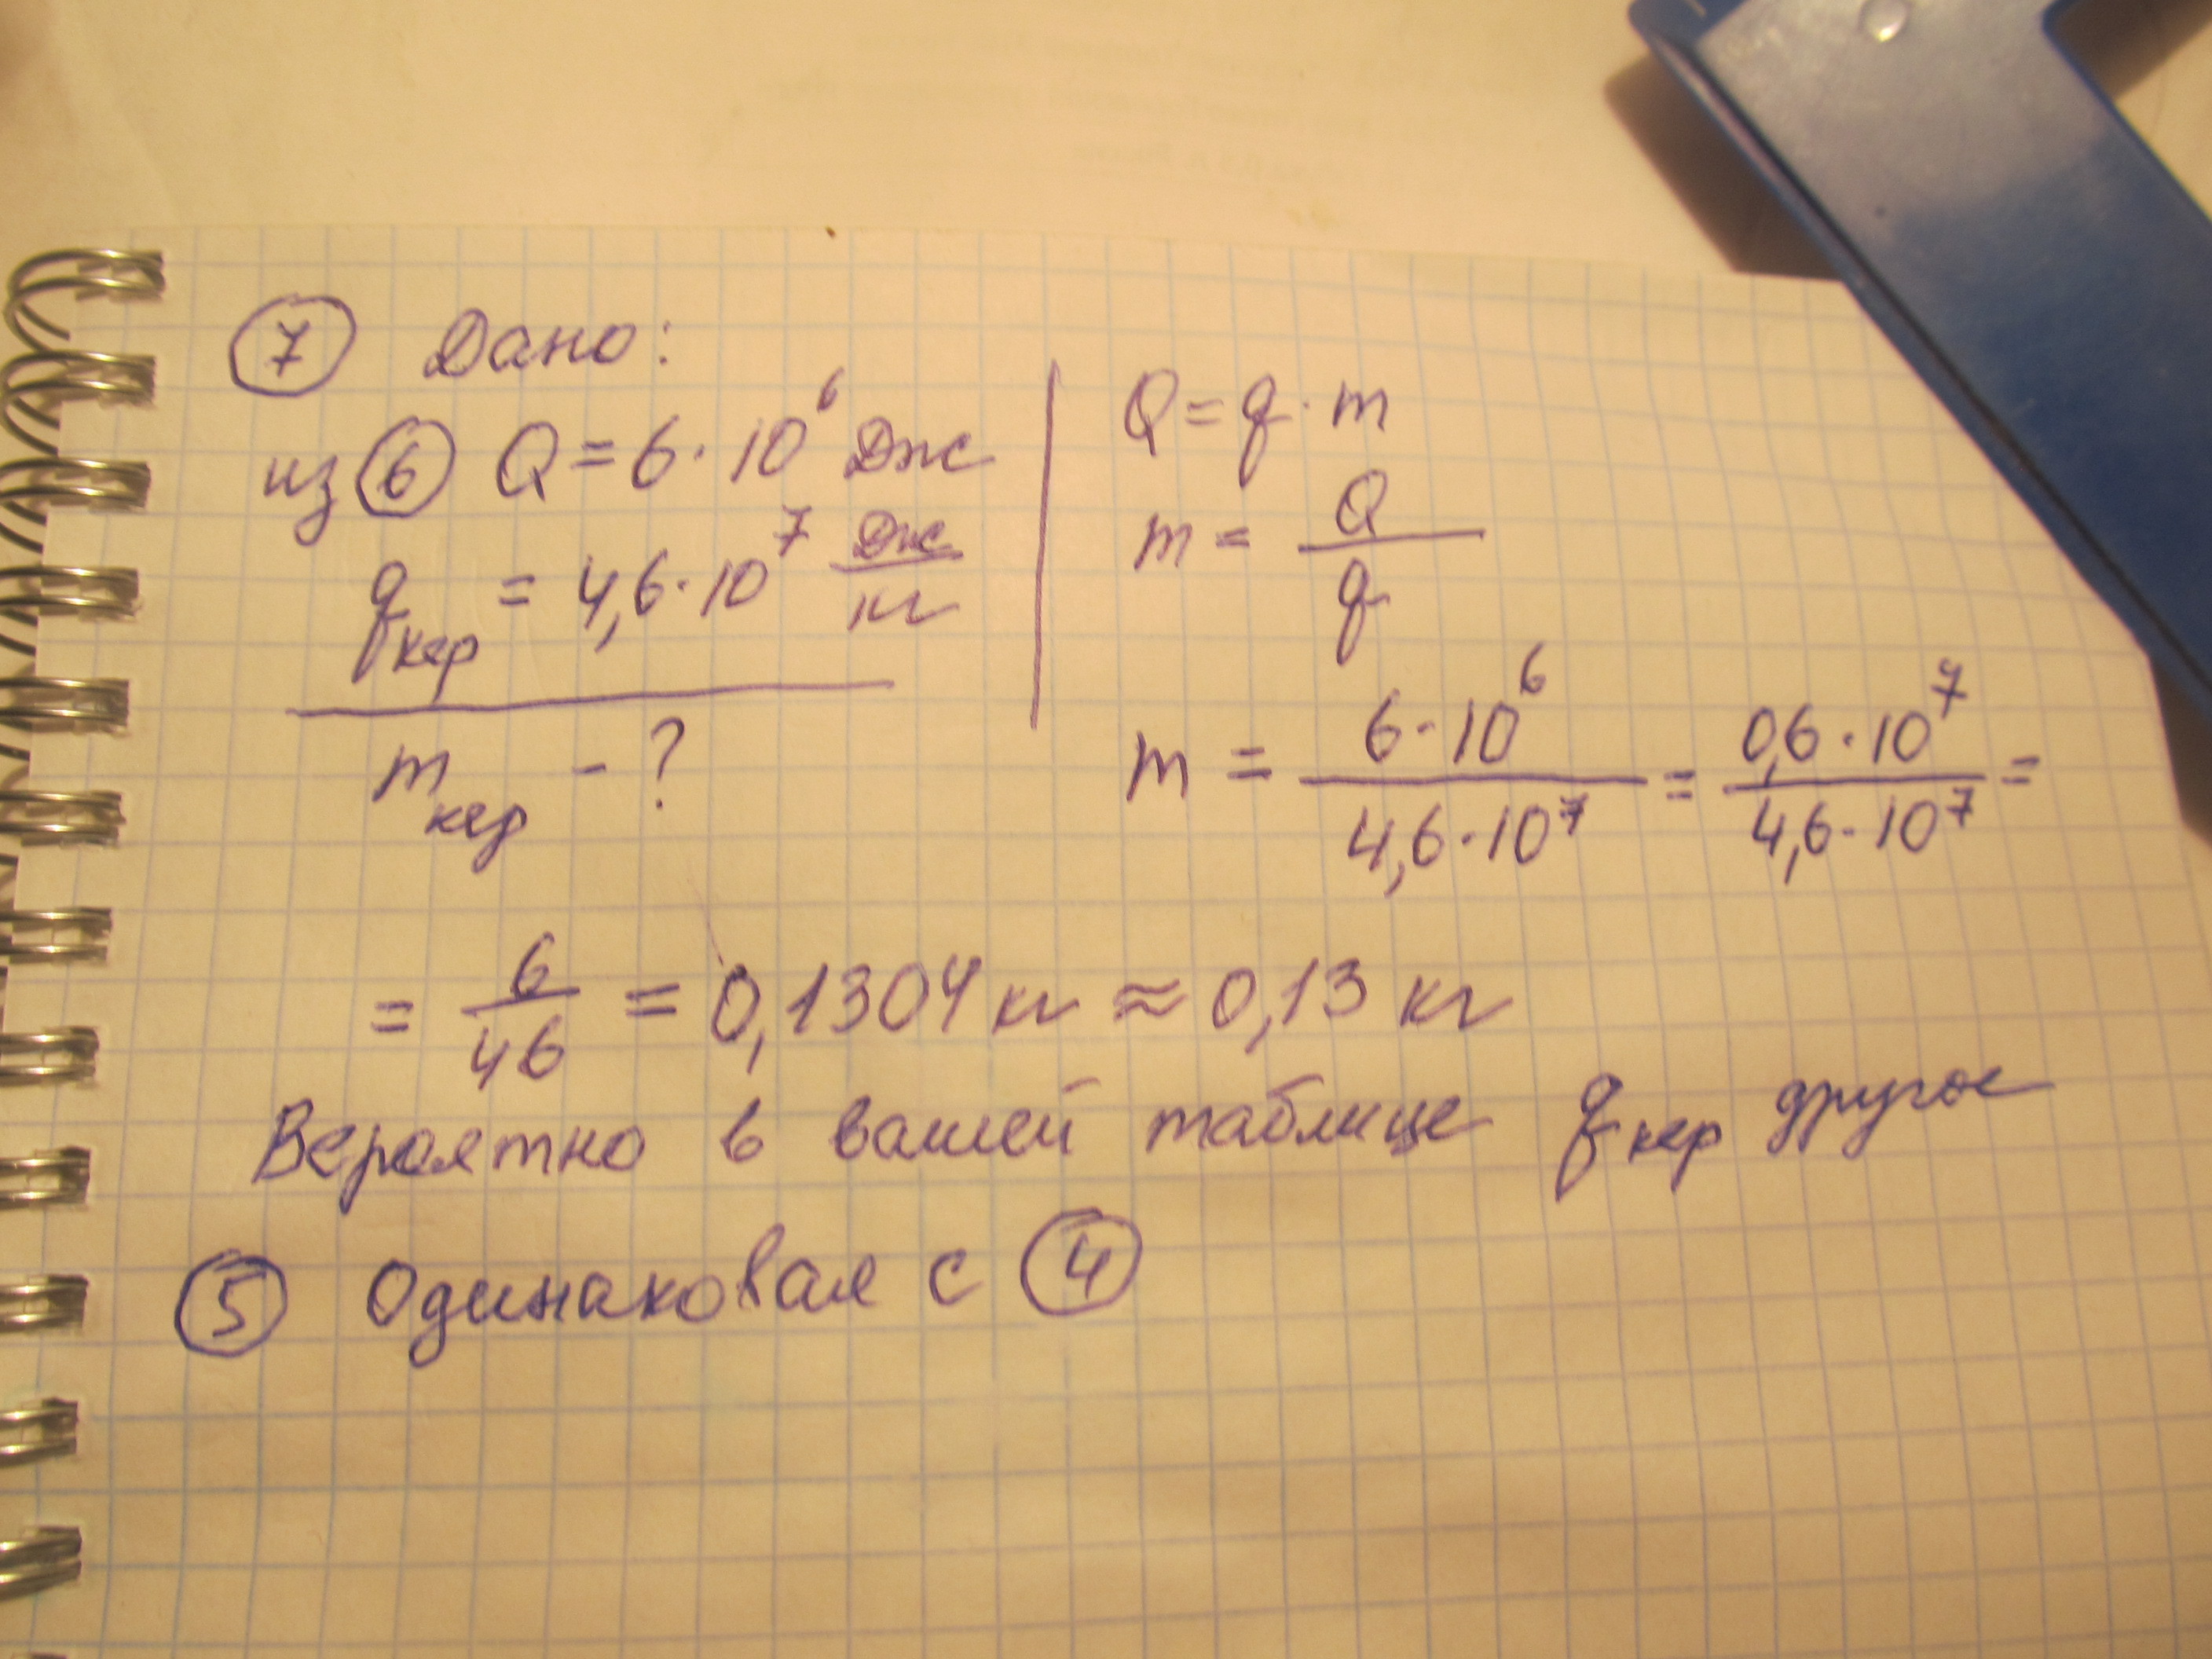 ⑦ Дано:
из ⑥ Q = 6·10⁶ Дж
qкер = 4,6·10⁷ Дж/кг
mкер - ?
Q = q·m
m = Q/q
m = 6·10⁶/4,6·10⁷ = 0,6·10⁷/4,6·10⁷ =
= 6/46 = 0,1304 кг ≈ 0,13 кг
Вероятно в вашей таблице qкер другое
⑤ Одинаковая с ④